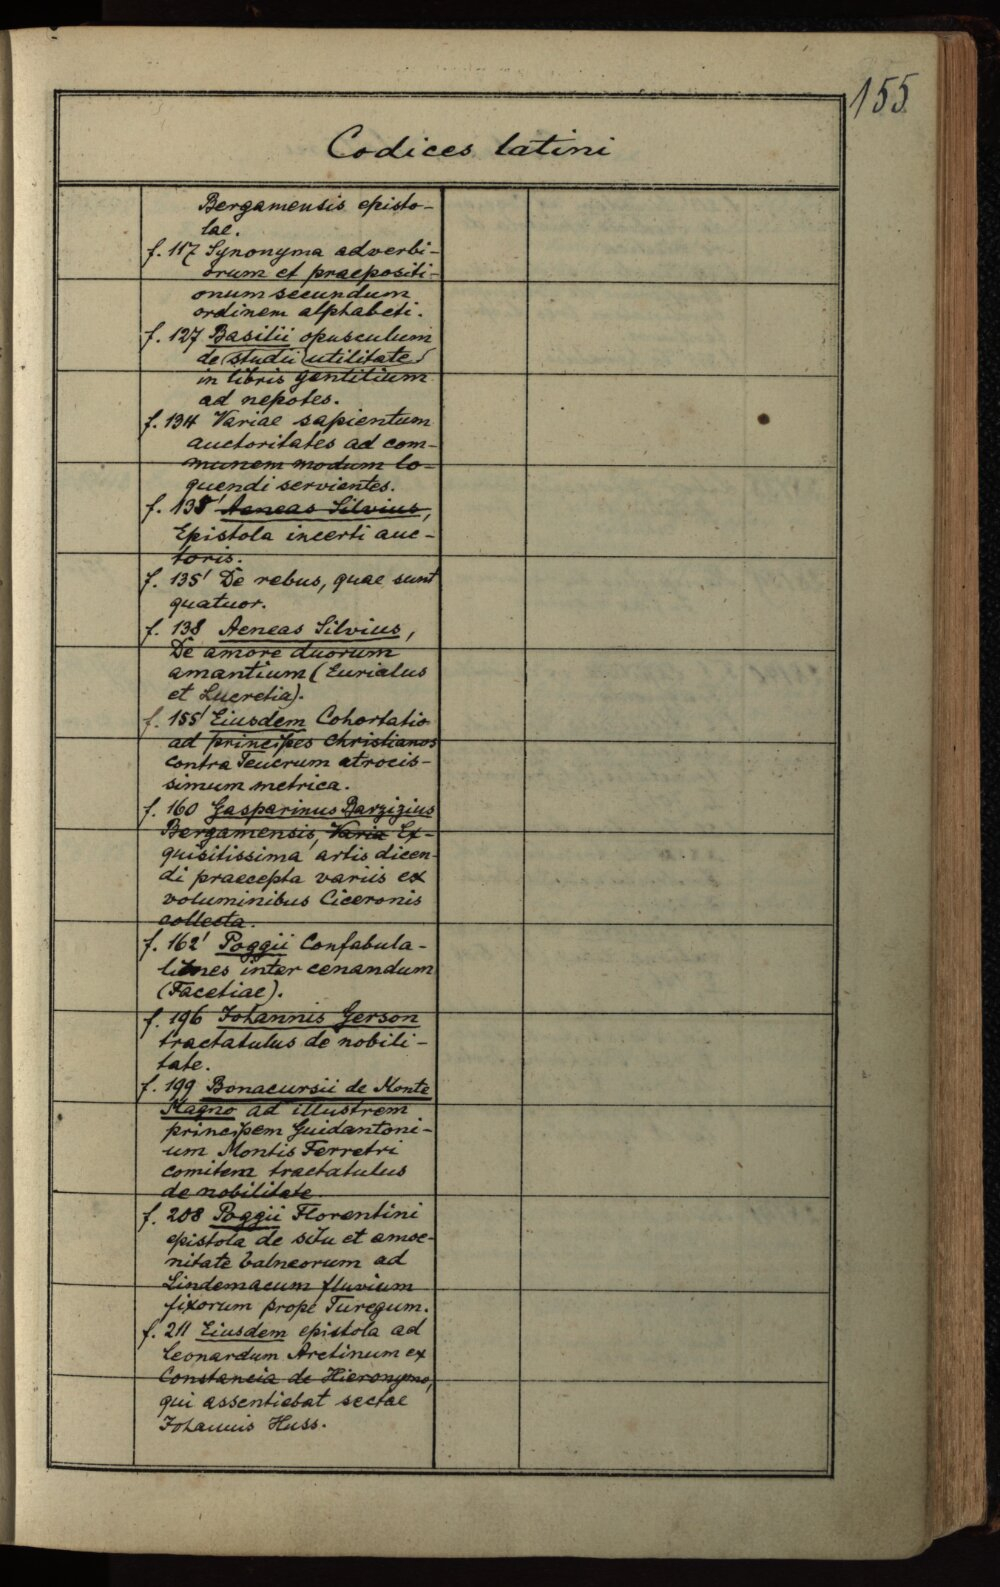 155
Codices latini
Bergamensis episto-
lae.
f. 117 Synonyma adverbi-
orum et praepositi-
onum secundum
ordinem alphabeti.
f. 127 Basilii opusculum
de (studii) utilitate
in libris gentilium
ad nepotes.
f. 134 Variae sapientum
auctoritates ad com-
munem modum lo-
quendi servientes.
f. 135' Aeneas Silvius,
Epistola incerti auc-
toris.
f. 135' De rebus, quae sunt
quatuor.
f. 138 Aeneas Silvius,
De amore duorum
amantium (Eurialus
et Lucretia).
f. 155' Eiusdem Cohortatio
ad principes Christianos
contra Teucrum atrocis-
simum metrica.
f. 160 Gasparinus Barzizius
Bergamensis, Varia Ex-
quisitissima artis dicen-
di praecepta variis ex
voluminibus Ciceronis
collecta.
f. 162' Poggii Confabula-
tiones inter cenandum
(Facetiae).
f. 196 Johannis Gerson
tractatulus de nobili-
tate.
f. 199 Bonacursii de Monte
Magno ad illustrem
principem Guidantoni-
um Montis Ferretri
comitem tractatulus
de nobilitate.
f. 208 Poggii Florentini
epistola de situ et amoe-
nitate balneorum ad
Lindemacum fluvium
fixorum prope Turegum.
f. 211 Eiusdem epistola ad
Leonardum Aretinum ex
Constancia de Hieronymo,
qui assentiebat sectae
Johannis Huss.